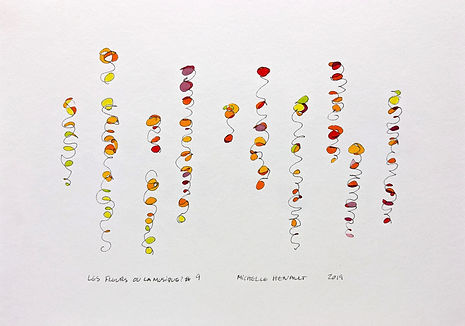 LES FLEURS OU LA MUSIQUE? # 9 MICHELLE HENAULT 2019